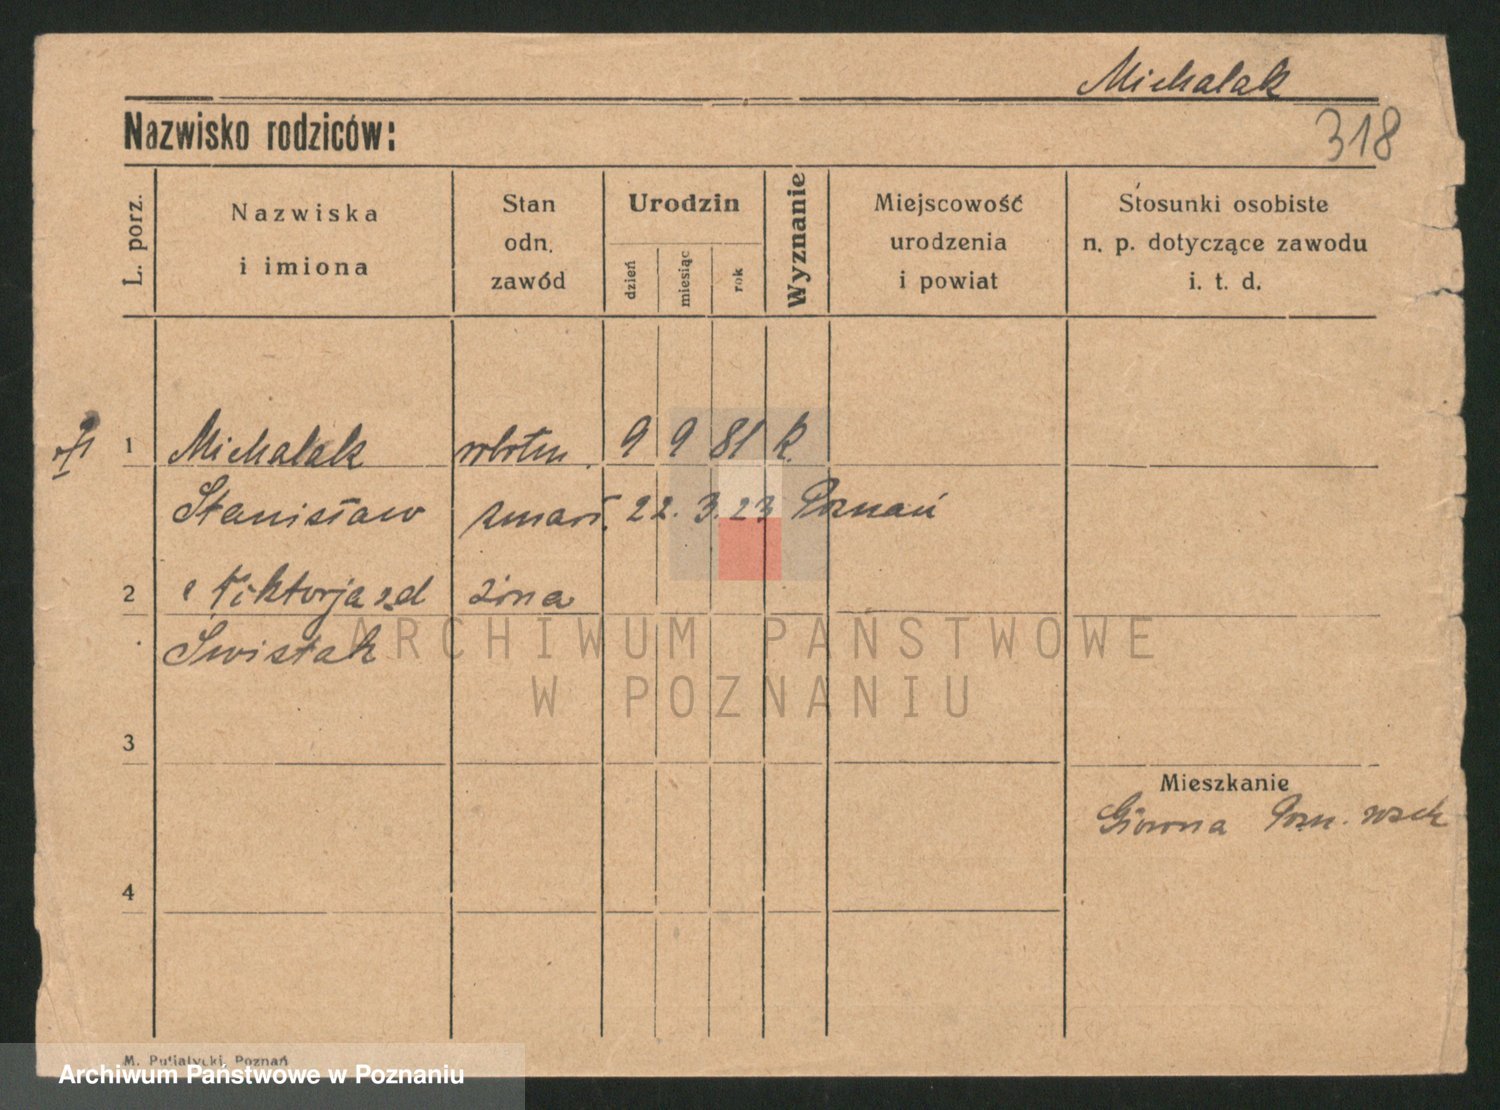 Michalak
Nazwisko rodziców:
318
L. porz.
Nazwiska
i imiona
Stan
odn.
zawód
Urodzin
dzień
miesiąc
rok
Wyznanie
Miejscowość
urodzenia
i powiat
Stosunki osobiste
n. p. dotyczące zawodu
i. t. d.
1 Michalak robotn. 9 9 81 k.
Stanisław zmarł. 22. 3. 23 Poznań
2 Wiktorja z d żona
Świstak
ARCHIWUM PAŃSTWOWE
W POZNANIU
3
Mieszkanie
Główna Pozn. wsch
4
M. Putiatycki, Poznań
Archiwum Państwowe w Poznaniu